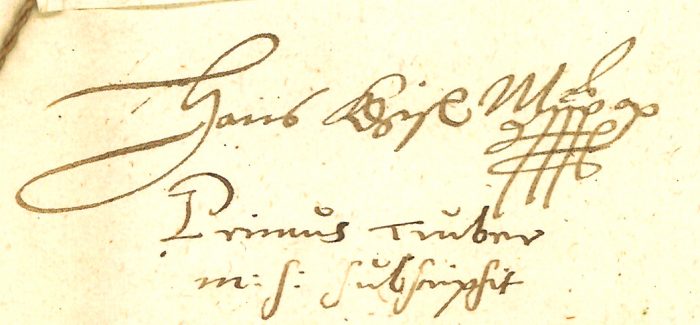 Hans Kisl Mpp
Primus Truber
m: s: subscripsit